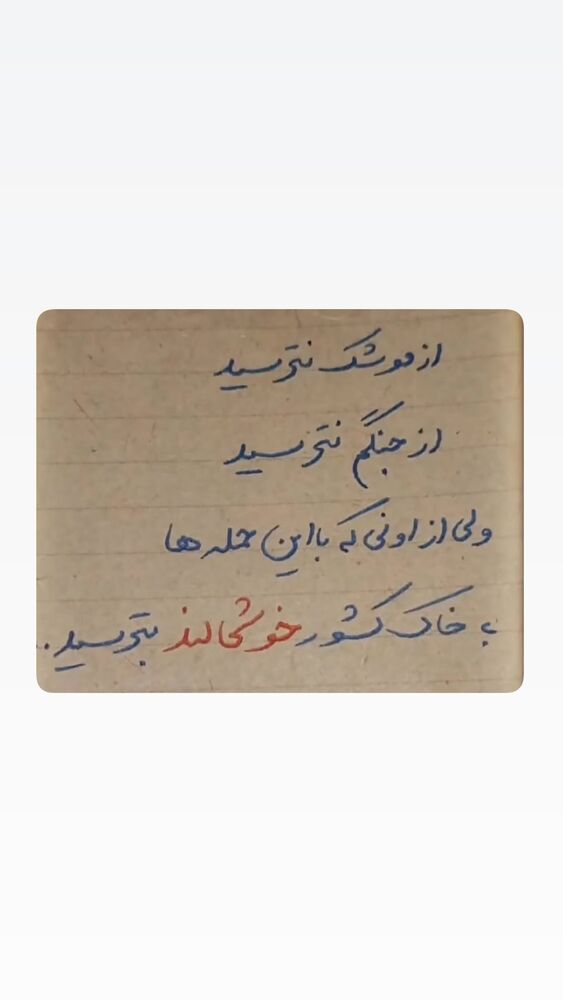 از موشک نترسید
از جنگم نترسید
ولی از اونی که با این حمله ها
به خاک کشور خوشحالند بترسید.